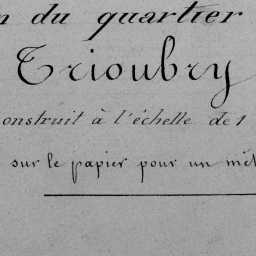 n du quartier
Trioubry
onstruit à l'échelle de 1
sur le papier pour un mèt